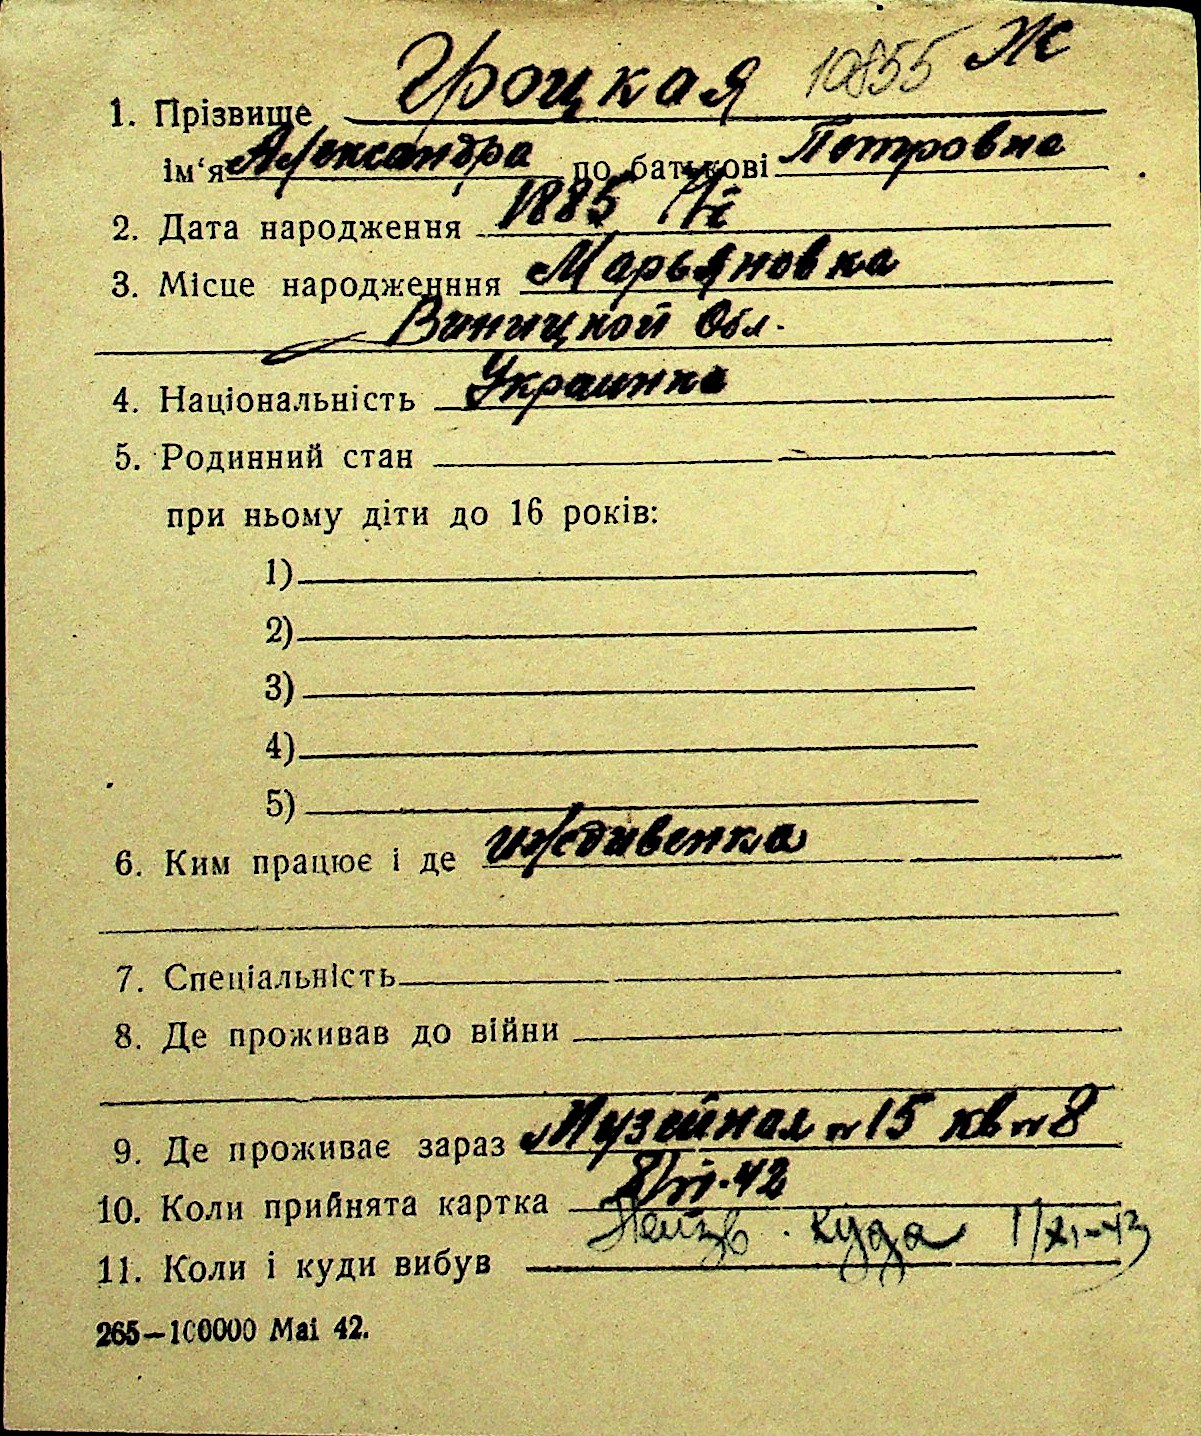 10855 Ж
1. Прізвище Гроцкая
ім‘я Александра по батькові Петровна
2. Дата народження 1885
3. Місце народженння Марьяновка
Виницкой Обл.
4. Національність Украинка
5. Родинний стан
при ньому діти до 16 років:
1)
2)
3)
4)
5)
6. Ким працює і де иждивенка
7. Спеціальність
8. Де проживав до війни
9. Де проживає зараз Музейная № 15 кв № 8
10. Коли прийнята картка 8/VII-42
11. Коли і куди вибув Неизв. куда 1/XI-43
265—100000 Mai 42.